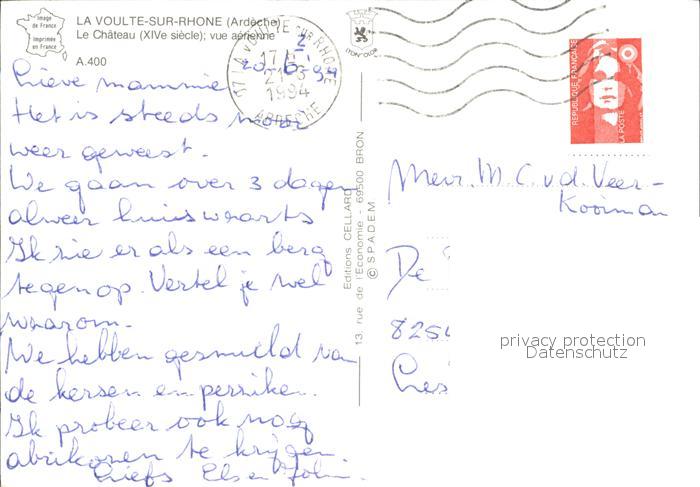 Image
de France
Imprimée
en France
LA VOULTE-SUR-RHONE (Ardèche)
Le Château (XIVe siècle); vue aérienne
A.400
LYON COLOR
07 LA VOULTE SUR RHONE
17 H
1994
ARDECHE
REPUBLIQUE FRANÇAISE
LA POSTE
20-6-94
Lieve mammie
Het is steeds mooi
weer geweest.
We gaan over 3 dagen
alweer huiswaarts
Ik zie er als een berg
tegenop. Vertel je wel
waarom.
We hebben gesmuld van
de kersen en perziken.
Ik probeer ook nog
abrikozen te krijgen.
Liefs Els en John.
Editions CELLARD
13, rue de l'Economie - 69500 BRON
© SPADEM
Mevr. M.C. v.d. Veer-
Kooiman
De
825
privacy protection
Datenschutz